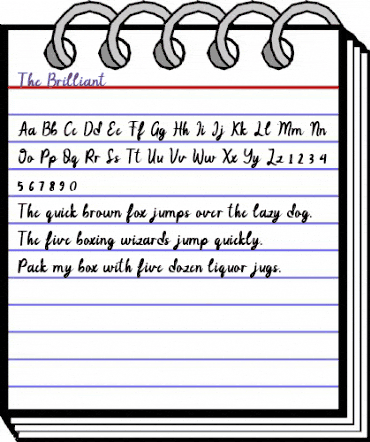 The Brilliant
Aa Bb Cc Dd Ee Ff Gg Hh Ii Jj Kk Ll Mm Nn
Oo Pp Qq Rr Ss Tt Uu Vv Ww Xx Yy Zz 1 2 3 4
5 6 7 8 9 0
The quick brown fox jumps over the lazy dog.
The five boxing wizards jump quickly.
Pack my box with five dozen liquor jugs.